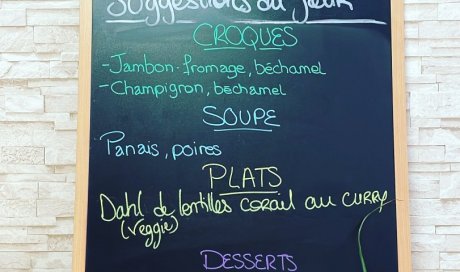 Suggestions du jour
CROQUES
-Jambon-fromage, béchamel
-Champignon, béchamel
SOUPE
Panais, poires
PLATS
Dahl de lentilles corail au CURRY
(veggie)
DESSERTS